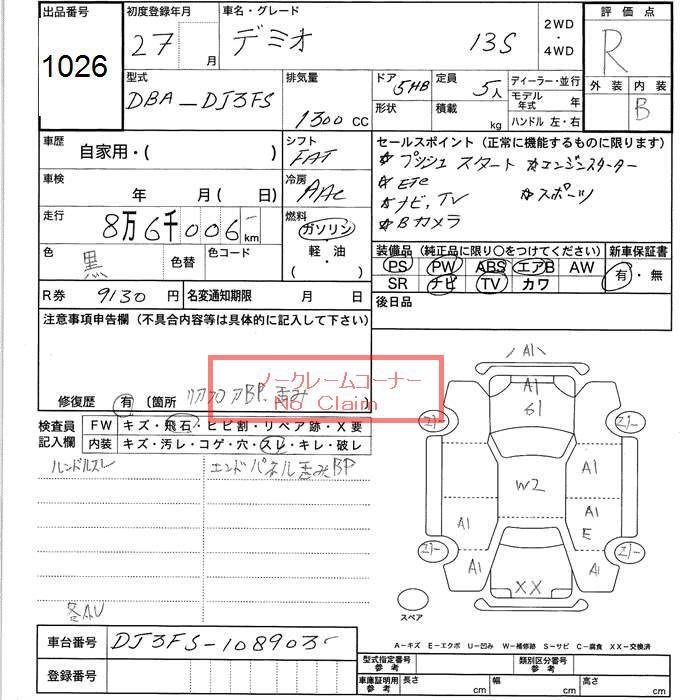 出品番号 初度登録年月 車名・グレード 2WD・4WD 評価点
1026 27 月 デミオ 13S R
型式 排気量 ドア 定員 ディーラー・並行 外装 内装
DBA-DJ3FS 1300 CC 5HB 5人 モデル年式 年 B
形状 積載 kg ハンドル 左・右
車歴 自家用・( ) シフト FAT セールスポイント (正常に機能するものに限ります)
☆ プッシュスタート ☆エンジンスターター
車検 年 月( 日) 冷房 AAC ☆ ETC ☆スポーツ
☆ナビ, TV
走行 8万6千006 km 燃料 ガソリン ☆Bカメラ
色 黒 色替 色コード 軽・油 ( )
装備品 (純正品に限り○をつけてください) 新車保証書
PS PW ABS エアB AW 有・無
SR ナビ TV カワ
R券 9130円 名変通知期限 月 日 後日品
注意事項申告欄 (不具合内容等は具体的に記入して下さい)
ノークレームコーナー
No Claim
修復歴 有 (箇所
検査員記入欄 FW キズ・飛石・ヒビ割・リペア跡・X要
内装 キズ・汚レ・コゲ・穴・スレ・キレ・破レ
ハンドルスレ エンドパネル歪みBP
各AU
A1
A1
G1
W2
A1
A1
A1
E
A1
A1
XX
スペア
A-キズ E-エクボ U-凹み W-補修跡 S-サビ C-腐食 XX-交換済
車台番号 DJ3FS-108903
登録番号
型式指定番号 参考 類別区分番号 参考
車庫証明用 参考 長さ cm 幅 cm 高さ cm